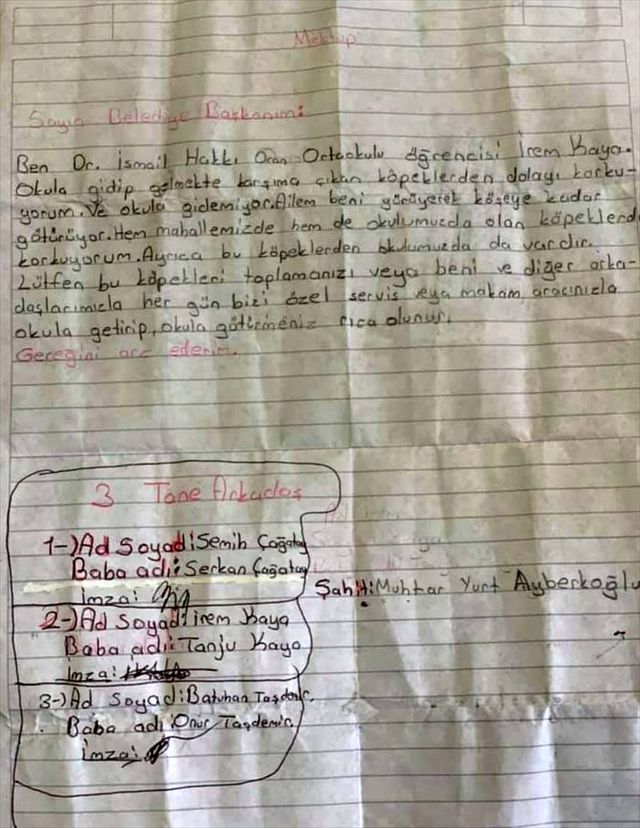 Mektup
Sayın Belediye Başkanım:
Ben Dr. İsmail Hakkı Oran Ortaokulu öğrencisi İrem Kaya.
Okula gidip gelmekte karşıma çıkan köpeklerden dolayı korku-
yorum. Ve okula gidemiyor. Ailem beni yürüyerek köşeye kadar
götürüyor. Hem mahallemizde hem de okulumuzda olan köpeklerd
korkuyorum. Ayrıca bu köpeklerden okulumuzda da vardır.
Lütfen bu köpekleri toplamanızı veya beni ve diğer arka-
daşlarımızla her gün bizi özel servis veya makam aracınızla
okula getirip, okula götürmeniz rica olunur.
Gereğini arz ederim.
3 Tane Arkadaş
1-) Ad Soyadı: Semih Çağatay
Baba adı: Serkan Çağatay
İmza:
Şahit: Muhtar Yurt Ayberkoğlu
2-) Ad Soyadı: İrem Kaya
Baba adı: Tanju Kaya
İmza:
3-) Ad Soyadı: Batuhan Taşdemir.
Baba adı: Onur Taşdemir.
İmza: